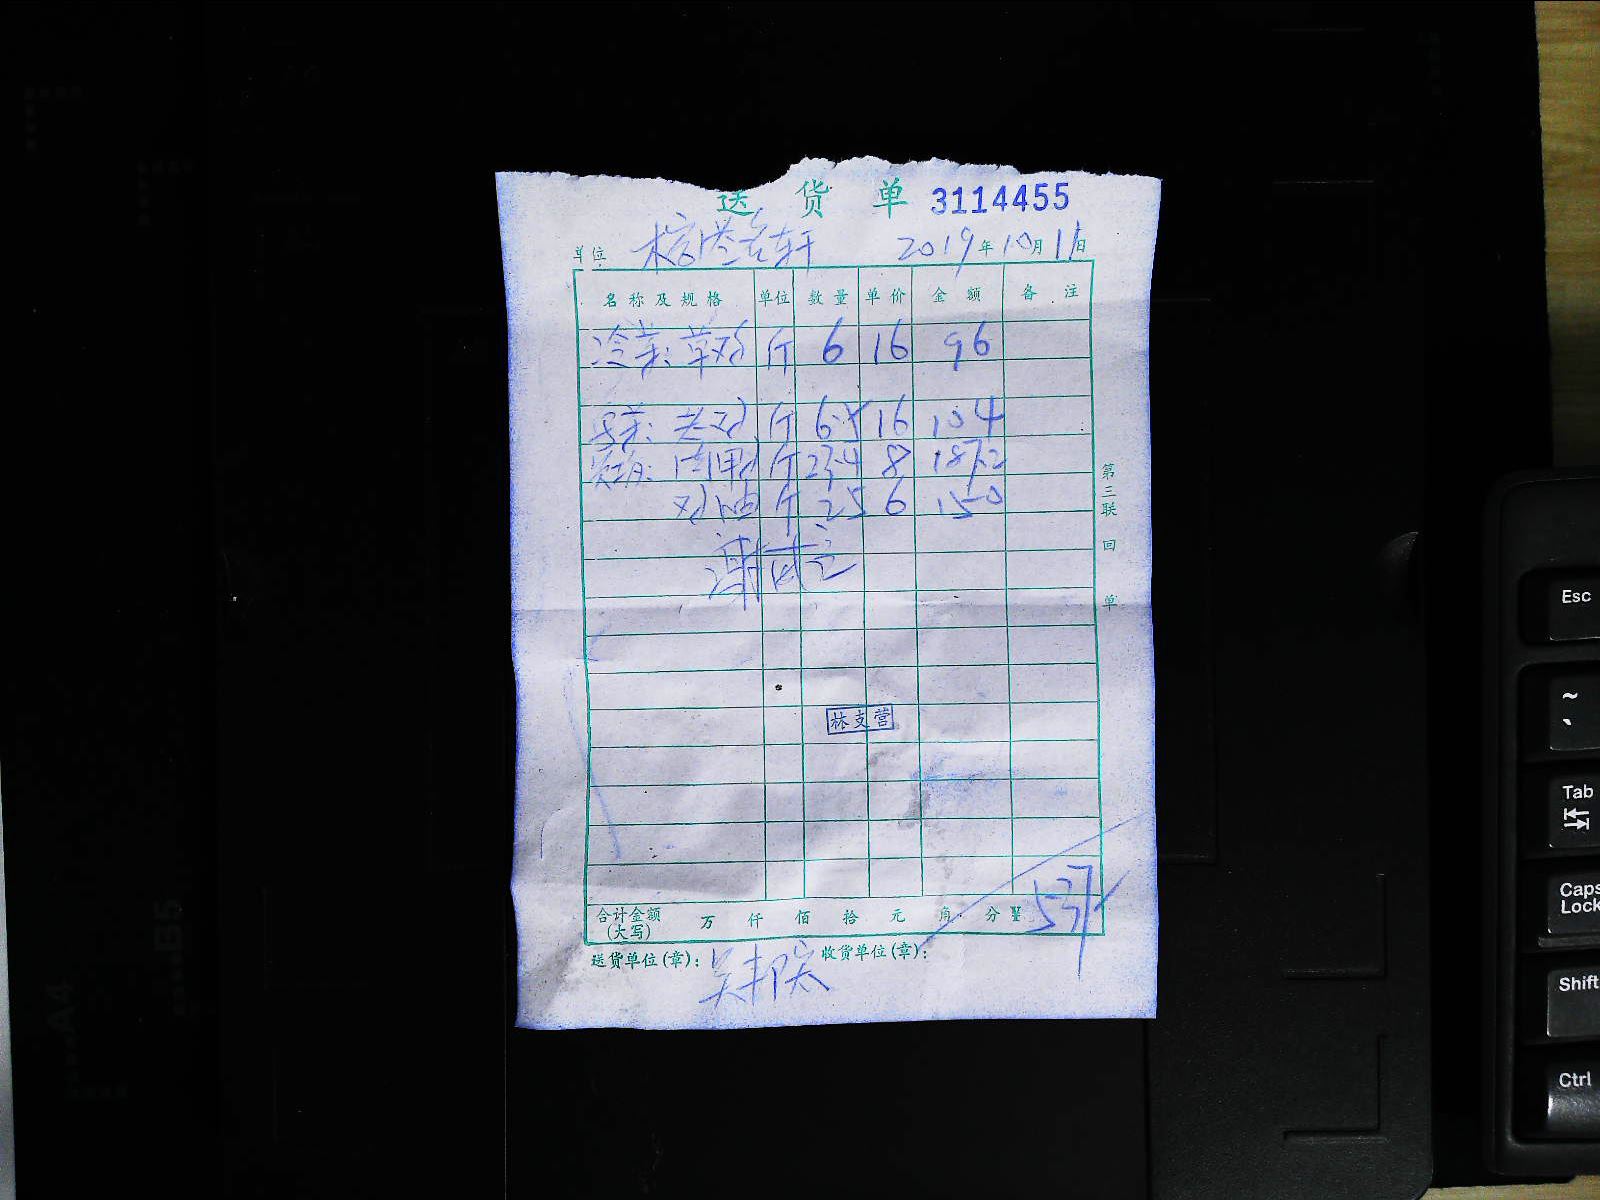 送货单 3114455
单位 榕港名轩 2019年10月11日
名称及规格 单位 数量 单价 金额 备注
冷菜: 草鸡 斤 6 16 96
老鸡 斤 6.5 16 104
斤 23.4 8 187.2
鸡油 斤 25 6 150
谢
林支营
合计金额(大写) 万 仟 佰 拾 元 角 分 ¥ 537
送货单位(章): 吴 收货单位(章):
第三联 回单
Esc
~
`
Tab
Caps Lock
Shift
Ctrl
A4
B5